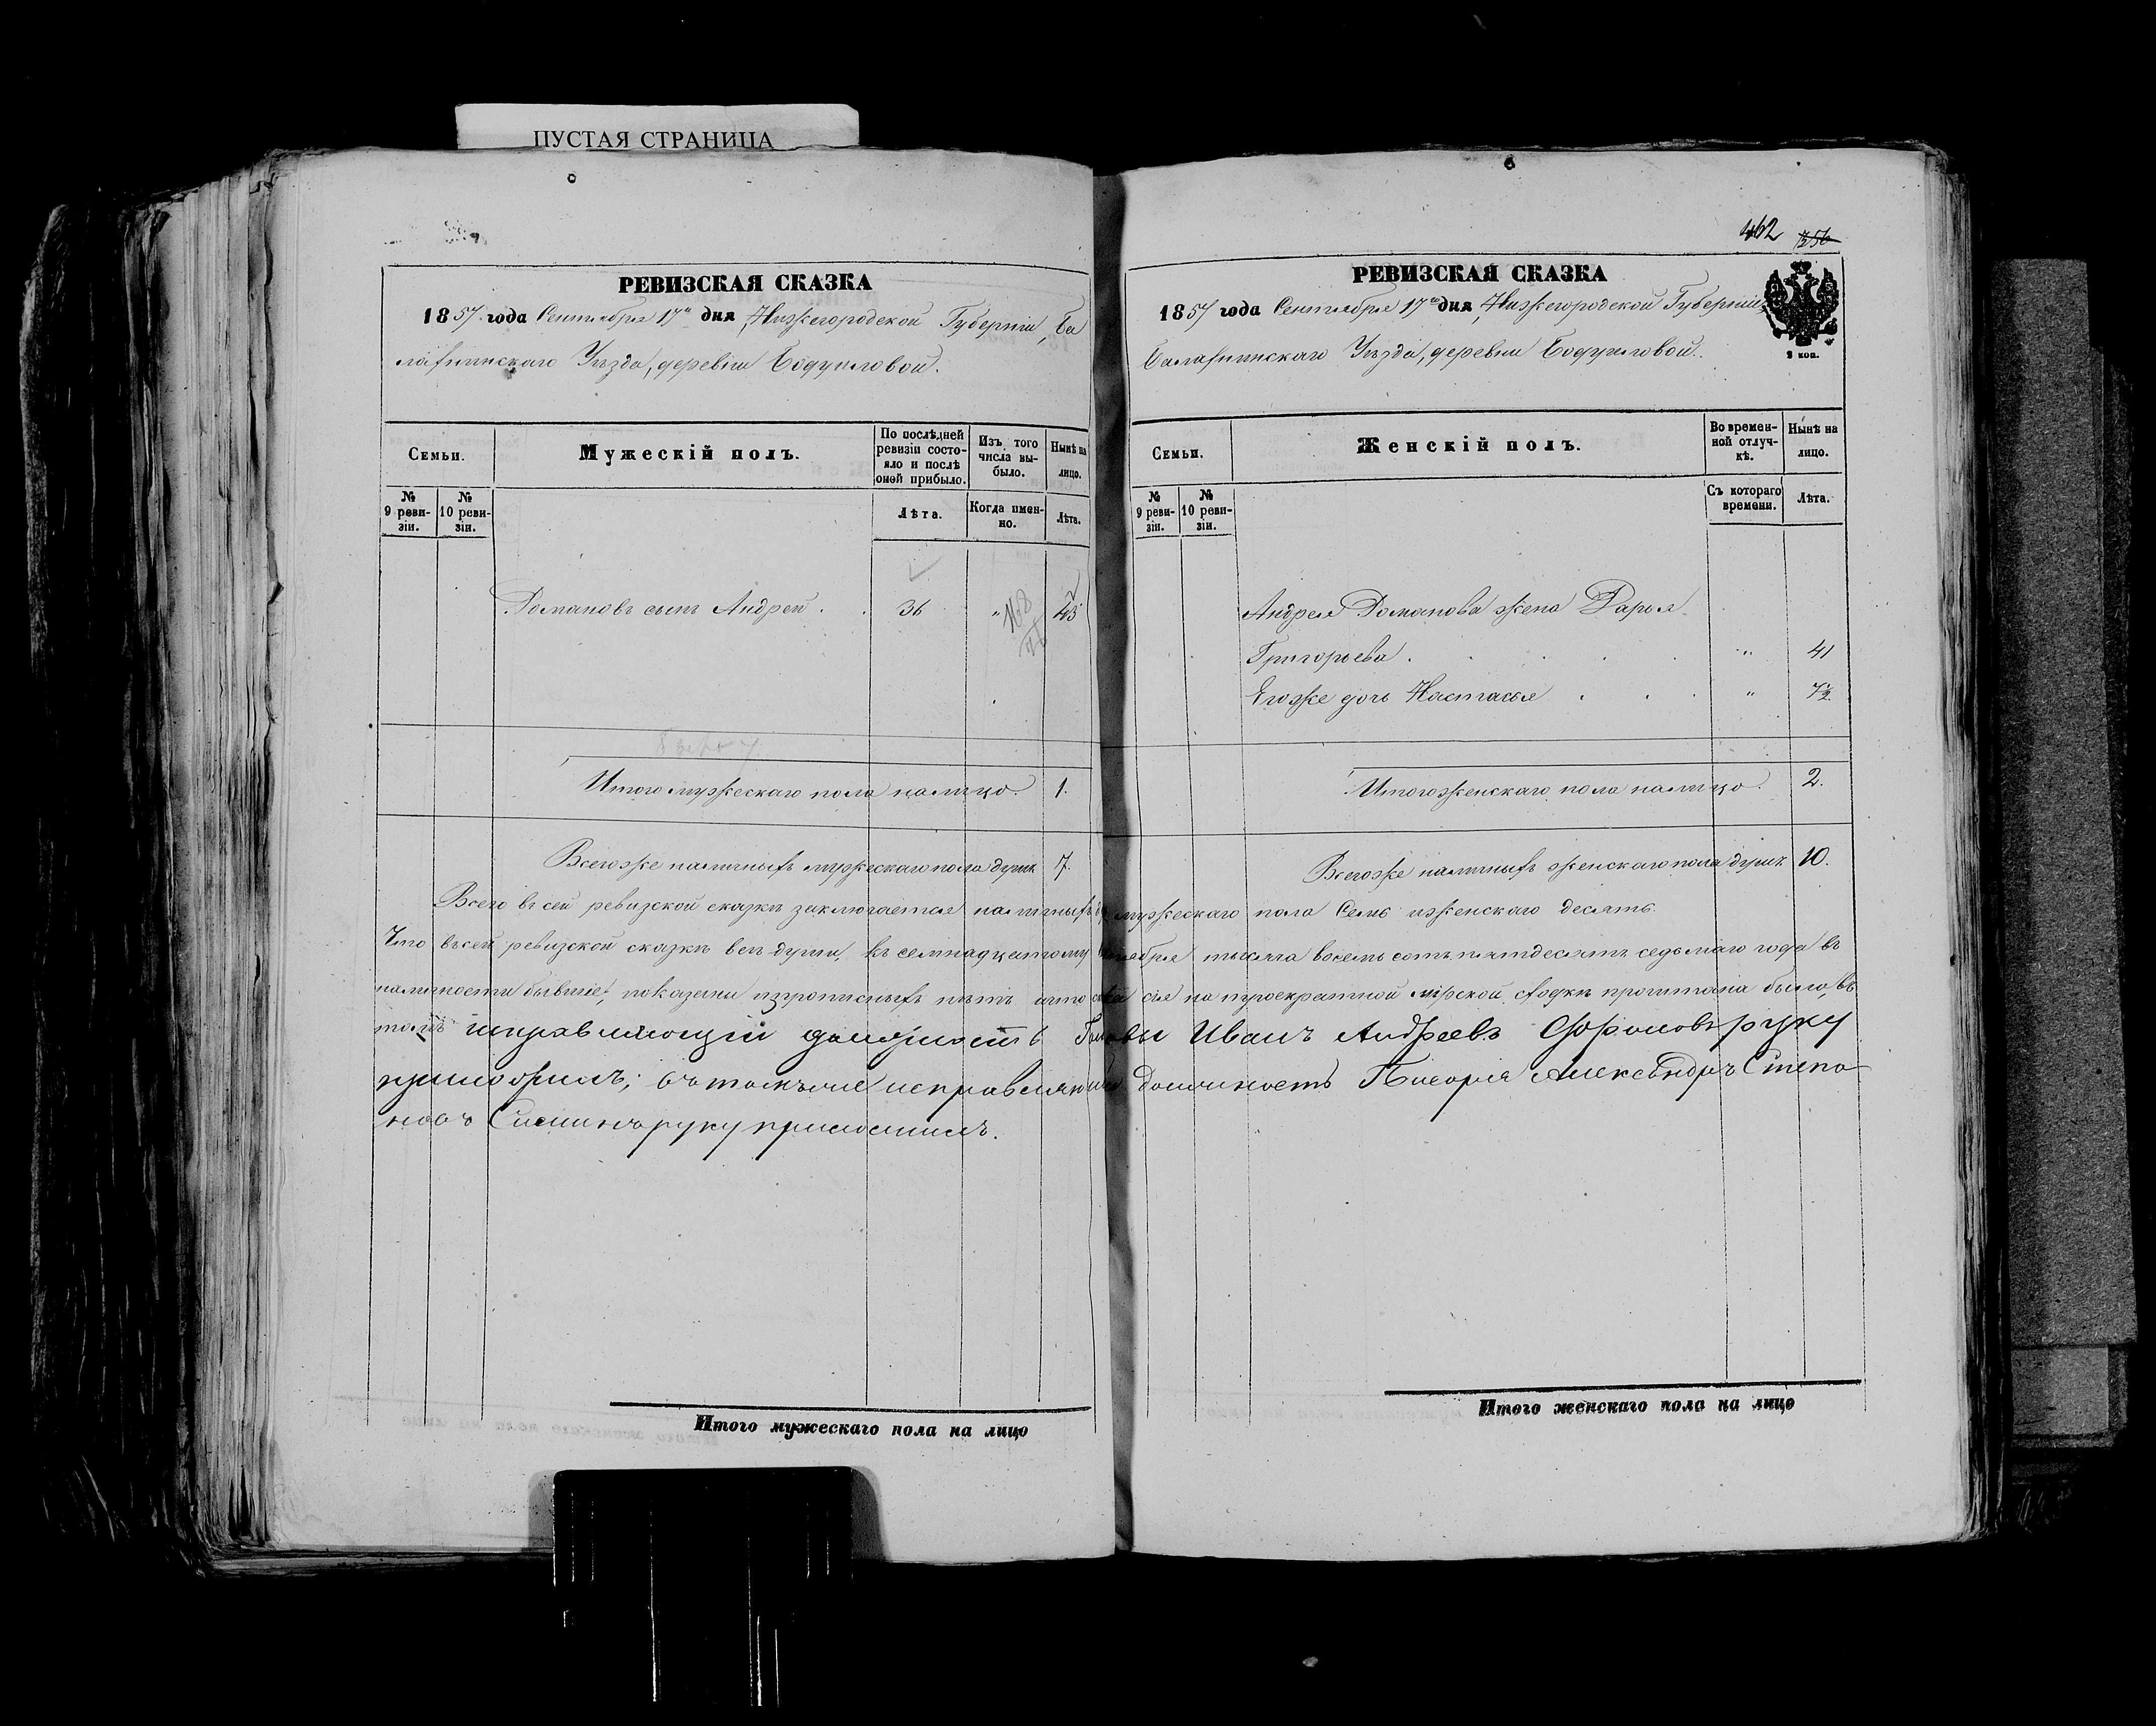 ПУСТАЯ СТРАНИЦА
РЕВИЗСКАЯ СКАЗКА
1857 года Сентября 17го дня, Нижегородской Губерніи, Ба
лахнинскаго Уѣзда, деревни
Семьи.
Мужескій полъ.
По послѣдней ревизіи состояло и послѣ оной прибыло.
Изъ того числа выбыло.
Нынѣ на лицо.
№ 9 ревизіи.
№ 10 ревизіи.
Лѣта.
Когда именно.
Лѣта.
Романовъ сынъ Андрей . . 36 „
Итого мужескаго пола налицо. 1.
Всегоже наличныхъ мужескаго пола душъ 7.
462 256
РЕВИЗСКАЯ СКАЗКА
1857 года Сентября 17го дня, Нижегородской Губерніи,
Балахнинскаго Уѣзда, деревни
2 коп.
Семьи.
Женскій полъ.
Во временной отлучкѣ.
Нынѣ на лицо.
№ 9 ревизіи.
№ 10 ревизіи.
Съ котораго времени.
Лѣта.
Андрея Романова жена Дарья
Григорьева . . . . „ 41
Егоже дочь Настасья . . . „ 7½
Итого женскаго пола налицо. 2.
Всегоже наличныхъ женскаго пола душъ 10.
Всего въ сей ревизской сказкѣ заключается наличныхъ мужескаго пола Семь и женскаго десять.
Что въ сей ревизской сказкѣ всѣ души, къ семнадцатому Сентября тысяча восемь сотъ пятьдесятъ седьмаго года въ
наличности бывшіе, показаны и прописныхъ нѣтъ и что сказка сія на троекратной мірской сходкѣ прочитана была, въ
томъ исправляющій должность Головы Иванъ Андреевъ руку
приложилъ; въ томъ же исправляющій Должность Писаря Александръ Степа-
новъ руку приложилъ.
Итого мужескаго пола на лицо
Итого женскаго пола на лицо